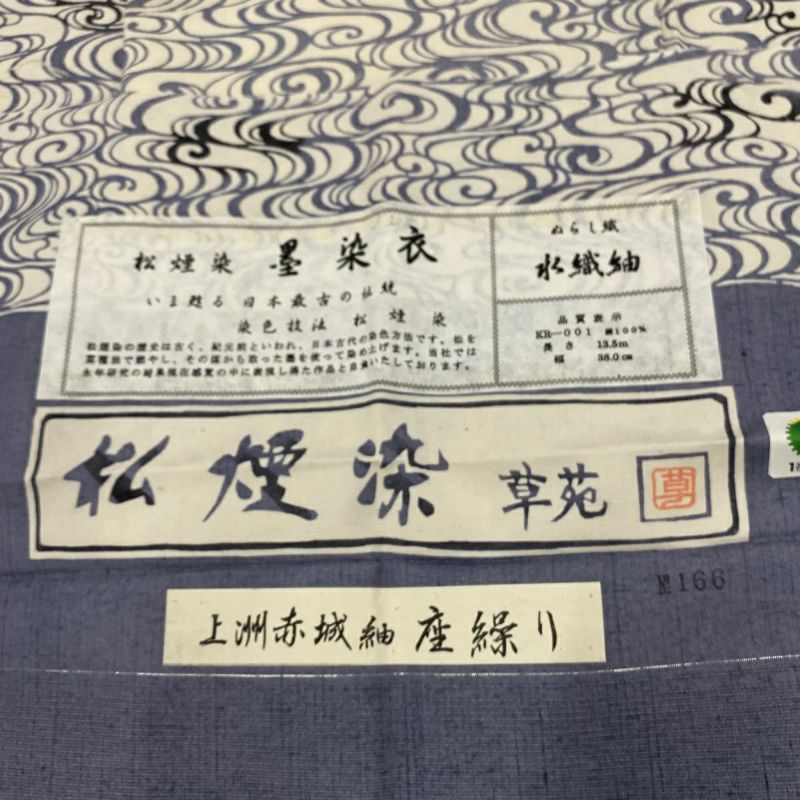 松煙染 墨染衣
いま甦る日本最古の伝統
染色技法 松煙染
松煙染の歴史は古く、紀元前といわれ、日本古代の染色方法です。松を
菜種油で燃やし、その煤から取った墨を使って染め上げます。当社では
永年研究の結果現在感覚の中に表現し得た作品と自負いたしております。
ぬらし織
水織紬
品質表示
KR―001 絹100%
長さ 13.5m
幅 38.0cm
松煙染 草苑
上洲赤城紬 座繰り
№166